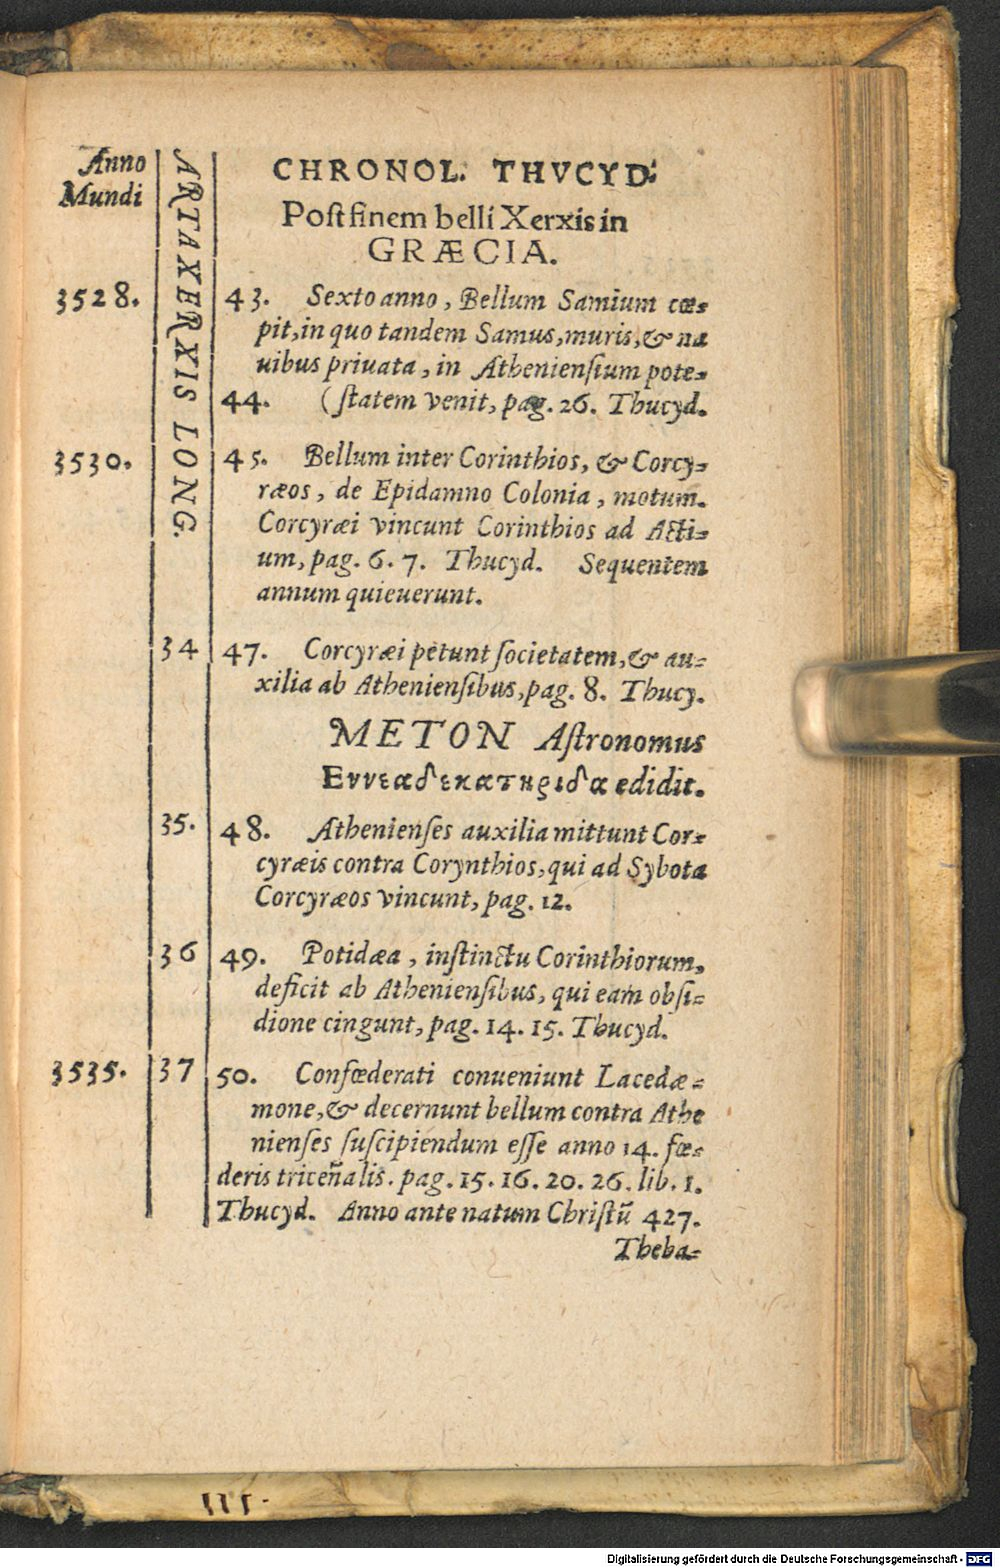 Anno
Mundi
ARTAXERXIS LONG.
CHRONOL. THVCYD.
Poſt finem belli Xerxis in
GRÆCIA.
3528. 43. Sexto anno, Bellum Samium cœ-
pit, in quo tandem Samus, muris, & na
uibus priuata, in Athenienſium pote-
44. (ſtatem venit, pag. 26. Thucyd.
3530. 45. Bellum inter Corinthios, & Corcy-
ræos, de Epidamno Colonia, motum.
Corcyræi vincunt Corinthios ad Acti-
um, pag. 6. 7. Thucyd. Sequentem
annum quieuerunt.
34 47. Corcyræi petunt ſocietatem, & au-
xilia ab Athenienſibus, pag. 8. Thucy.
METON Aſtronomus
Εννεαδεκατηριδα edidit.
35. 48. Athenienſes auxilia mittunt Cor-
cyræis contra Corynthios, qui ad Sybota
Corcyræos vincunt, pag. 12.
36 49. Potidæa, inſtinctu Corinthiorum,
deficit ab Athenienſibus, qui eam obſi-
dione cingunt, pag. 14. 15. Thucyd.
3535. 37 50. Confœderati conueniunt Lacedæ-
mone, & decernunt bellum contra Athe
nienſes ſuſcipiendum eſſe anno 14. fœ-
deris tricen̄alis. pag. 15. 16. 20. 26. lib. 1.
Thucyd. Anno ante natum Chriſtū 427.
Theba-
Digitalisierung gefördert durch die Deutsche Forschungsgemeinschaft - DFG